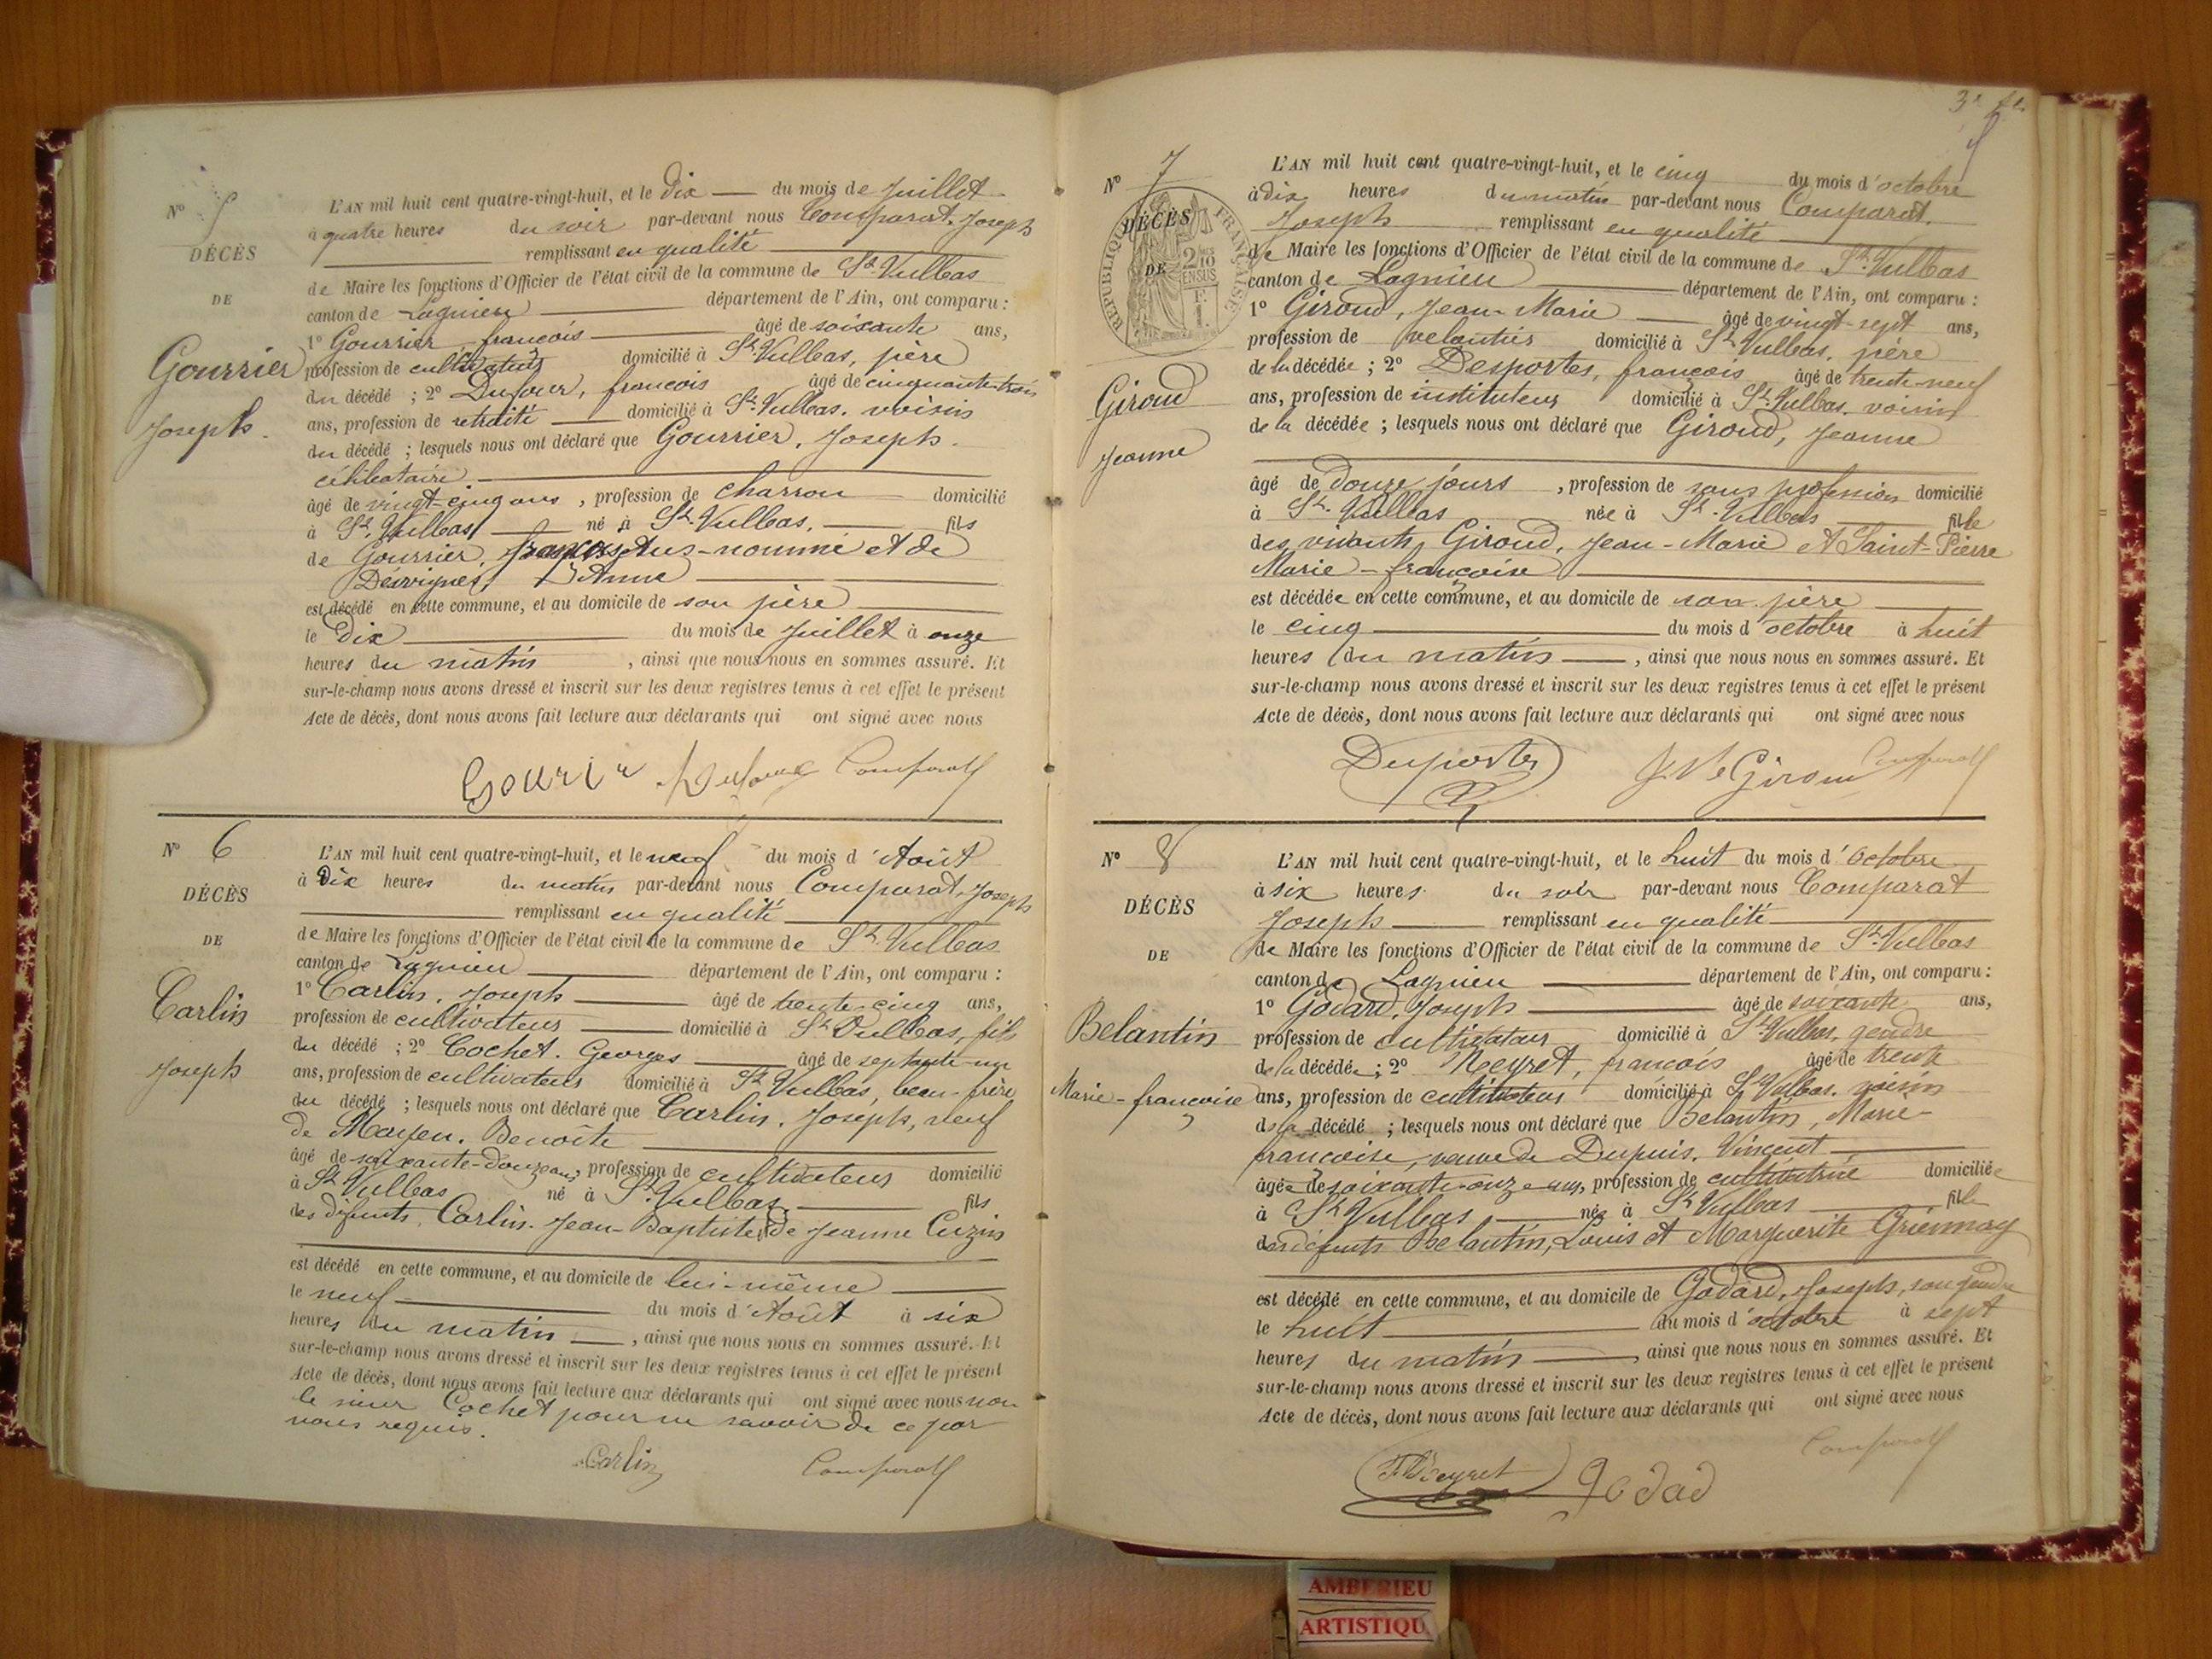 Nº 5
DÉCÈS
DE
Gourrier
Joseph.
L'AN mil huit cent quatre-vingt-huit, et le dix du mois de Juillet
à quatre heures du soir par-devant nous Comparat, Joseph
remplissant en qualité
de Maire les fonctions d'Officier de l'état civil de la commune de St. Vulbas
canton de Lagnieu département de l'Ain, ont comparu :
1º Gourrier, françois âgé de soixante ans,
profession de cultivateur domicilié à St. Vulbas, père
du décédé ; 2º Dufour, françois âgé de cinquante-trois
ans, profession de retraité domicilié à St. Vulbas. voisin
du décédé ; lesquels nous ont déclaré que Gourrier, Joseph.
célibataire.
âgé de vingt-cinq ans, profession de charron domicilié
à St. Vulbas né à St. Vulbas, fils
de Gourrier, françois sus-nommé et de
Anne
est décédé en cette commune, et au domicile de son père
le dix du mois de Juillet à onze
heures du matin, ainsi que nous nous en sommes assuré. Et
sur-le-champ nous avons dressé et inscrit sur les deux registres tenus à cet effet le présent
Acte de décès, dont nous avons fait lecture aux déclarants qui ont signé avec nous
Gourier Dufour Comparat
Nº 6
DÉCÈS
DE
Carlin
Joseph
L'AN mil huit cent quatre-vingt-huit, et le neuf du mois d'Août
à Dix heures du matin par-devant nous Comparat, Joseph
remplissant en qualité
de Maire les fonctions d'Officier de l'état civil de la commune de St. Vulbas
canton de Lagnieu département de l'Ain, ont comparu :
1º Carlin, Joseph âgé de trente-cinq ans,
profession de cultivateur domicilié à St. Vulbas, fils
du décédé ; 2º Cochet. Georges âgé de septante-un
ans, profession de cultivateur domicilié à St. Vulbas, beau-frère
du décédé ; lesquels nous ont déclaré que Carlin, Joseph, veuf
de Moyen. Benoîte
âgé de soixante-douze ans, profession de cultivateur domicilié
à St. Vulbas né à St. Vulbas fils
des défunts, Carlin. Jean-Baptiste, et de Jeanne Cuzin
est décédé en cette commune, et au domicile de lui-même
le neuf du mois d'Août à six
heures du matin, ainsi que nous nous en sommes assuré. Et
sur-le-champ nous avons dressé et inscrit sur les deux registres tenus à cet effet le présent
Acte de décès, dont nous avons fait lecture aux déclarants qui ont signé avec nous non
le sieur Cochet pour ne savoir de ce par
nous requis.
Carlin Comparat
3e
Nº 7
DÉCÈS
DE
RÉPUBLIQUE FRANÇAISE
2/10 EN SUS
F. 1.
Giroud
Jeanne
L'AN mil huit cent quatre-vingt-huit, et le cinq du mois d'octobre
à dix heures du matin par-devant nous Comparat.
Joseph remplissant en qualité
de Maire les fonctions d'Officier de l'état civil de la commune de St. Vulbas
canton de Lagnieu département de l'Ain, ont comparu :
1º Giroud, Jean-Marie âgé de vingt-sept ans,
profession de domicilié à St. Vulbas, père
de la décédée ; 2º Desportes, françois âgé de trente-neuf
ans, profession de instituteur domicilié à St. Vulbas voisin
de la décédée ; lesquels nous ont déclaré que Giroud, Jeanne
âgé de douze jours, profession de sans profession domicilié
à St. Vulbas née à St. Vulbas fille
des vivants, Giroud, Jean-Marie et Saint-Pierre
Marie-françoise
est décédée en cette commune, et au domicile de son père
le cinq du mois d'octobre à huit
heures du matin, ainsi que nous nous en sommes assuré. Et
sur-le-champ nous avons dressé et inscrit sur les deux registres tenus à cet effet le présent
Acte de décès, dont nous avons fait lecture aux déclarants qui ont signé avec nous
Desportes Giroud Comparat
Nº 8
DÉCÈS
DE
Belantin
Marie-françoise
L'AN mil huit cent quatre-vingt-huit, et le huit du mois d'octobre
à six heures du soir par-devant nous Comparat
Joseph remplissant en qualité
de Maire les fonctions d'Officier de l'état civil de la commune de St. Vulbas
canton de Lagnieu département de l'Ain, ont comparu :
1º Godard, Joseph âgé de soixante ans,
profession de cultivateur domicilié à St. Vulbas, gendre
de la décédée ; 2º Neyret, françois âgé de trente
ans, profession de cultivateur domicilié à St. Vulbas. voisin
de la décédé ; lesquels nous ont déclaré que Belantin, Marie-
françoise, veuve de Dupuis, Vincent
âgée de soixante-onze ans, profession de cultivatrice domiciliée
à St. Vulbas née à St. Vulbas fille
des défunts Belantin, Louis et Marguerite
est décédé en cette commune, et au domicile de Godard, Joseph, son gendre
le huit du mois d'octobre à sept
heures du matin, ainsi que nous nous en sommes assuré. Et
sur-le-champ nous avons dressé et inscrit sur les deux registres tenus à cet effet le présent
Acte de décès, dont nous avons fait lecture aux déclarants qui ont signé avec nous
Comparat
F. Neyret Godad
AMBERIEU
ARTISTIQU